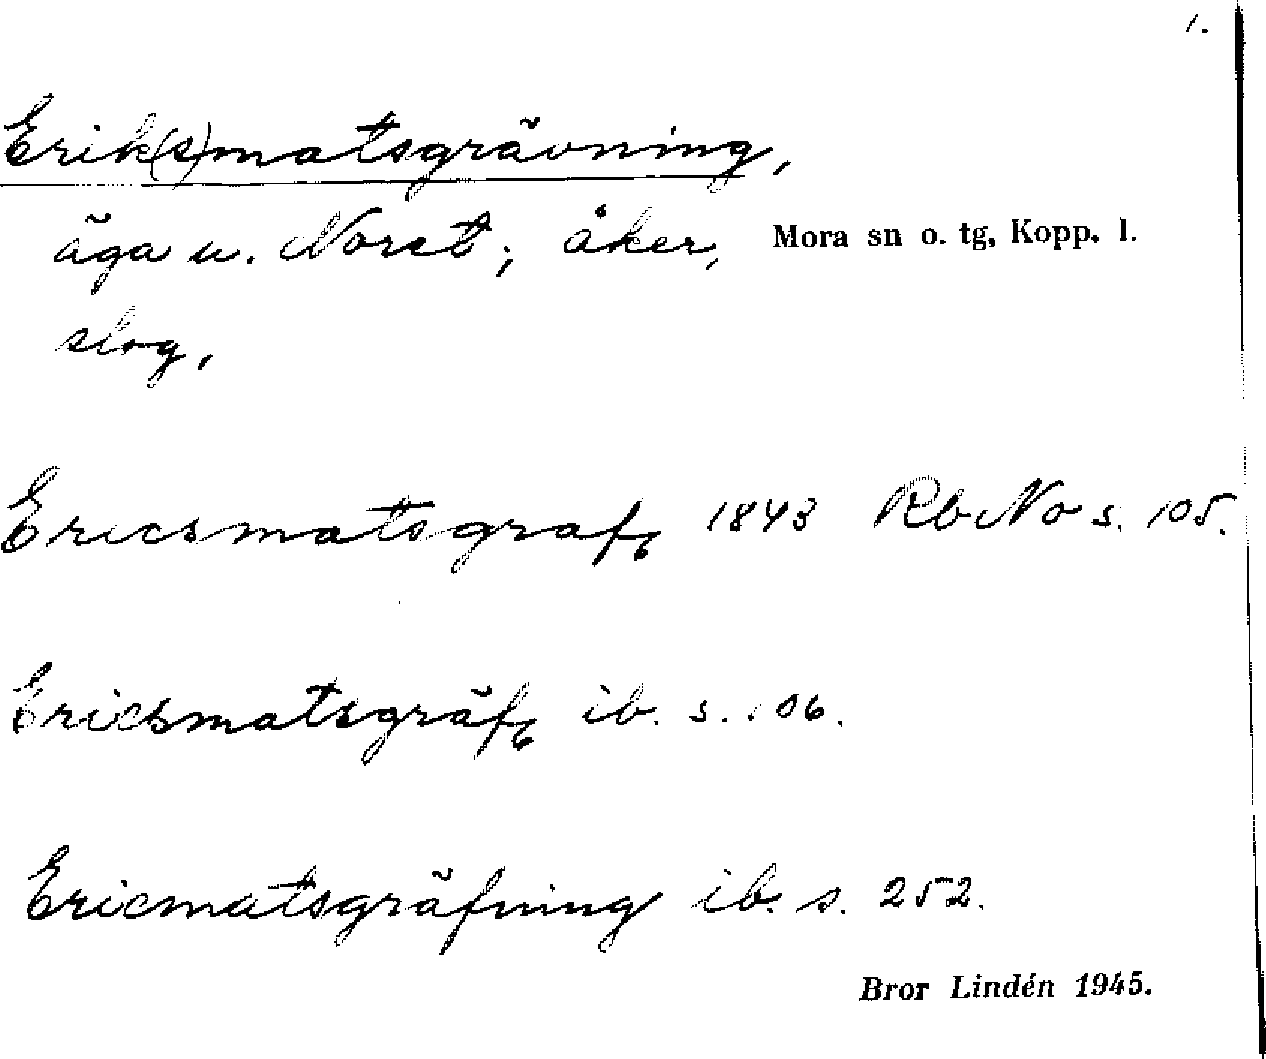 1.
Erik(s)matsgrävning,
äga u. Noret; åker, Mora sn o. tg, Kopp. l.
slog,
Ericsmatsgraf, 1843 Rb No s. 105.
Ericsmatsgräf, ib. s. 106.
Ericmatsgräfning ib. s. 252.
Bror Lindén 1945.